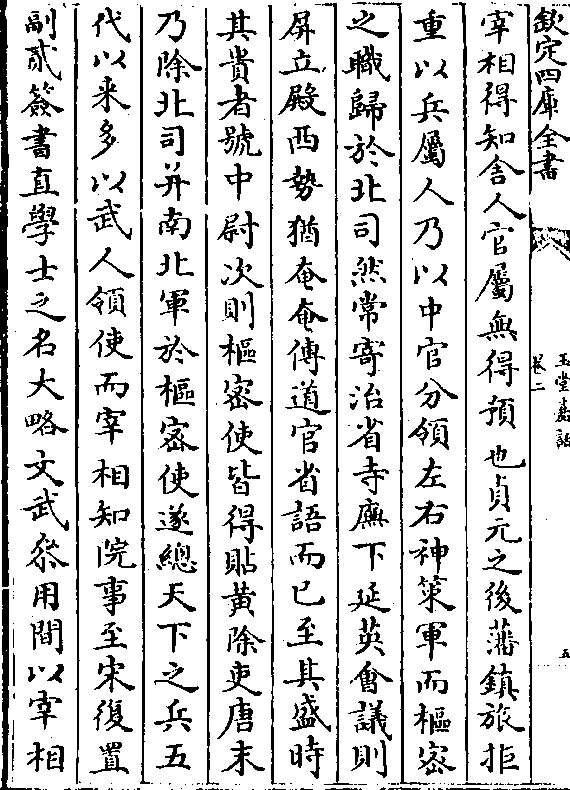 欽定四庫全書
玉堂嘉話
卷二
五
宰相得知舍人官屬無得預也貞元之後藩鎮旅拒
重以兵屬人乃以中官分領左右神策軍而樞密
之職歸於北司然常寄治省寺廡下延英會議則
屏立殿西勢猶奄奄傳道官省語而已至其盛時
其貴者號中尉次則樞密使皆得貼黃除吏唐末
乃除北司并南北軍於樞密使遂總天下之兵五
代以来多以武人領使而宰相知院事至宋復置
副貳簽書直學士之名大略文武叅用間以宰相